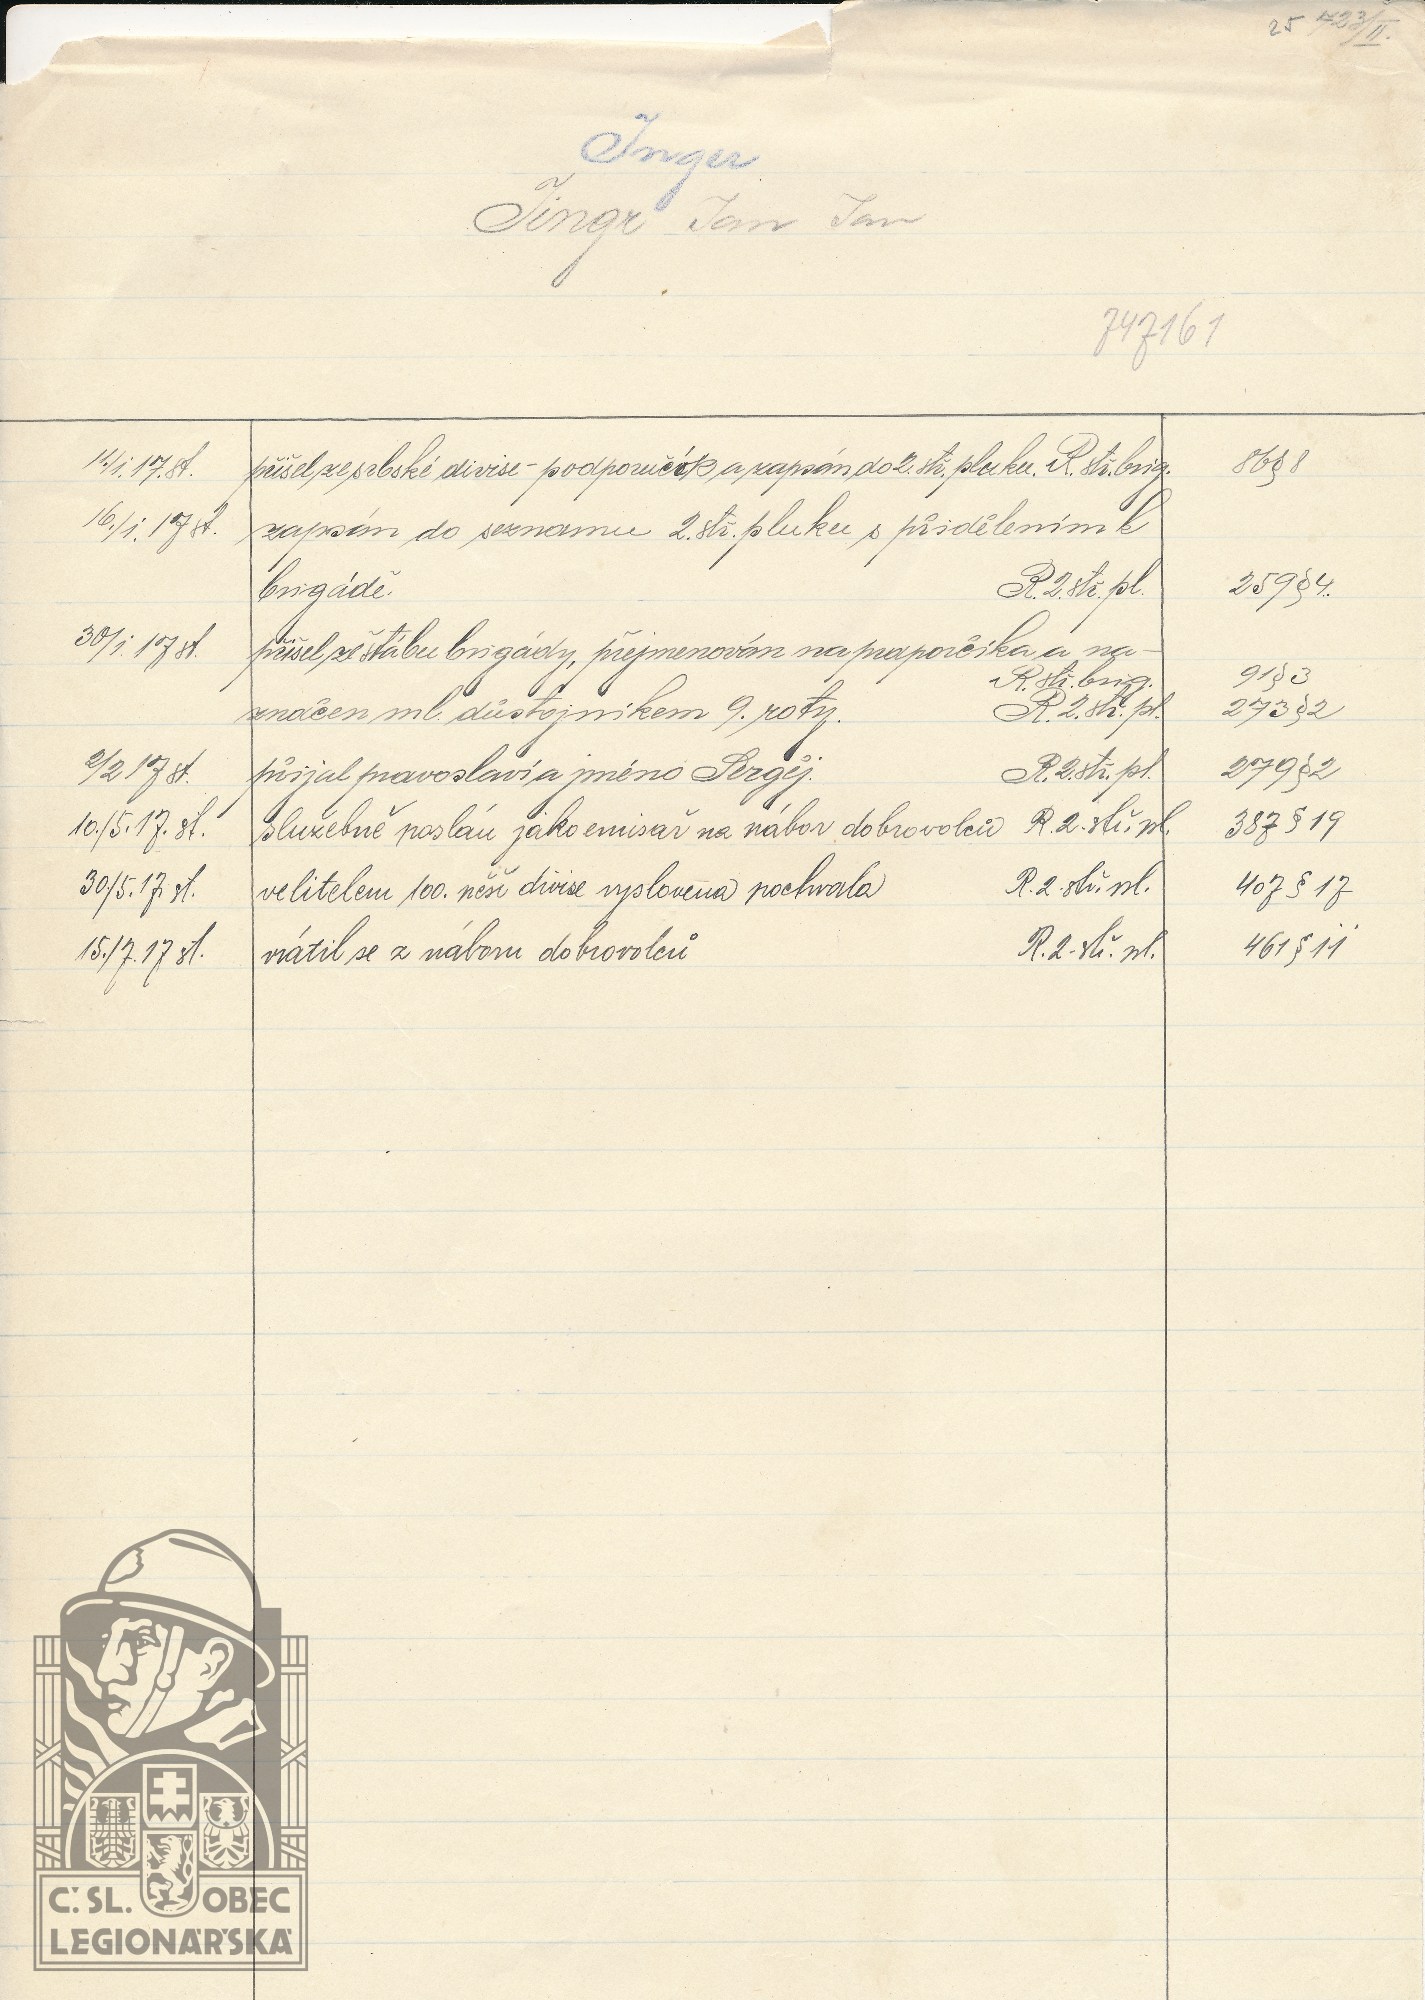 25 723/II.
Inger
Jingr Jan Jan
747161
14/I. 17. st. přišel ze srbské divise - podporučík a zapsán do 2. stř. pluku. R. stř. brig. 86 § 8
16./I. 17 st. zapsán do seznamu 2. stř. pluku s přidělením k
brigádě. R. 2. stř. pl. 259 § 4.
30/I. 17 st. přišel ze štábu brigády, přejmenován na praporčíka a na-
R. stř. brig. 91 § 3
značen ml. důstojníkem 9. roty. R. 2. stř. pl. 273 § 2
2/2 17 st. přijal pravoslaví a jméno Sergěj. R. 2. stř. pl. 279 § 2
10./5. 17. st. služebně poslán jako emisař na nábor dobrovolců R. 2. stř. pl. 387 § 19
30./5. 17. st. velitelem 100. pěší divise vyslovena pochvala R. 2. stř. pl. 407 § 17
15./7. 17 st. vrátil se z náboru dobrovolců R. 2. stř. pl. 461 § 11
Č. SL. OBEC
LEGIONÁŘSKÁ